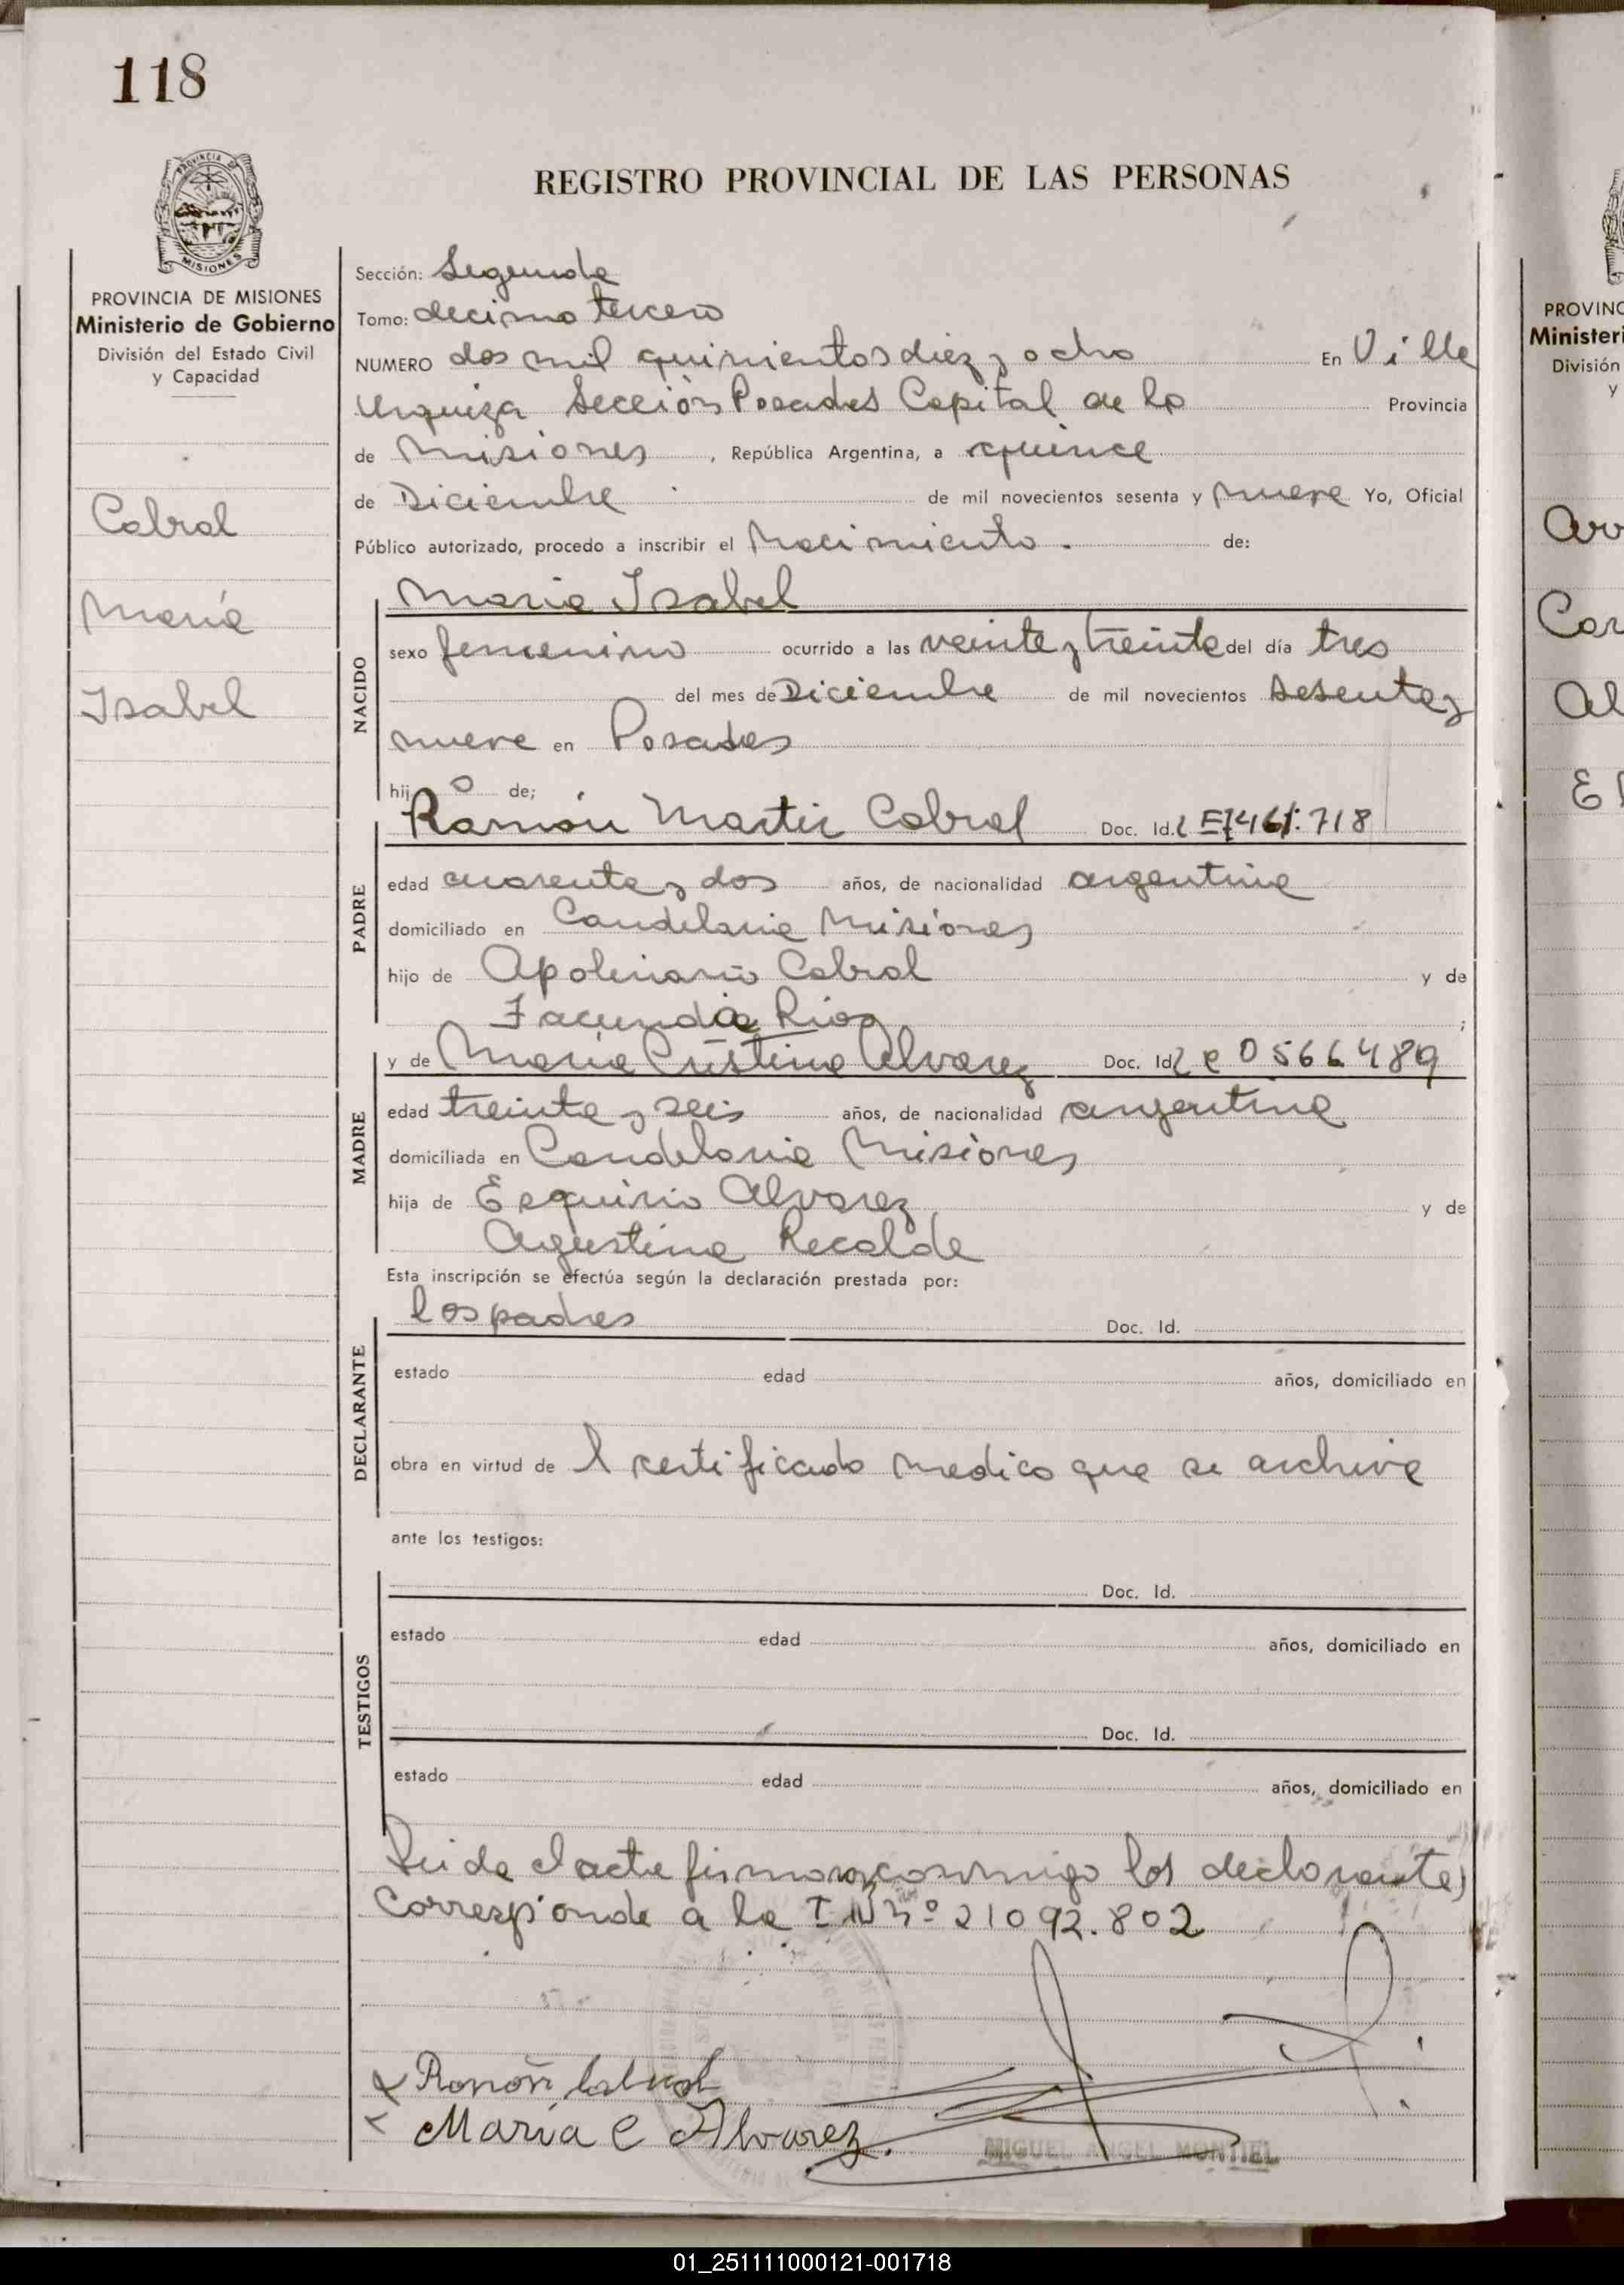 118
REGISTRO PROVINCIAL DE LAS PERSONAS
MISIONES
PROVINCIA DE MISIONES
Ministerio de Gobierno
División del Estado Civil
y Capacidad
Cabral
María
Isabel
Sección: Segunda
Tomo: decimo tercero
NUMERO dos mil quinientos diez y ocho En Villa
Urquiza Sección Posadas Capital de la Provincia
de Misiones, República Argentina, a quince
de Diciembre de mil novecientos sesenta y nueve Yo, Oficial
Público autorizado, procedo a inscribir el Nacimiento. de:
NACIDO
Maria Isabel
sexo femenino ocurrido a las veinte y treinta del día tres
del mes de Diciembre de mil novecientos sesenta y
nueve en Posadas
hij o de;
PADRE
Ramón Martin Cabral Doc. Id.
edad cuarenta y dos años, de nacionalidad argentina
domiciliado en Candelaria Misiones
hijo de Apolinario Cabral y de
Facunda Rios ;
MADRE
y de María Cristina Alvarez Doc. Id. L e 0566489
edad treinta y seis años, de nacionalidad argentina
domiciliada en Candelaria Misiones
hija de Esquirio Alvarez y de
Agustina Recalde
Esta inscripción se efectúa según la declaración prestada por:
DECLARANTE
los padres Doc. Id.
estado edad años, domiciliado en
obra en virtud de l certificado medico que se archiva
ante los testigos:
TESTIGOS
Doc. Id.
estado edad años, domiciliado en
Doc. Id.
estado edad años, domiciliado en
Leida el acta firman conmigo los declarantes
Corresponde a la I N nº 21092.802
Ramón Cabral
María C Alvarez.
MIGUEL ANGEL MONTIEL
PROVINC
Ministeri
División
y
Car
Al
01_251111000121-001718